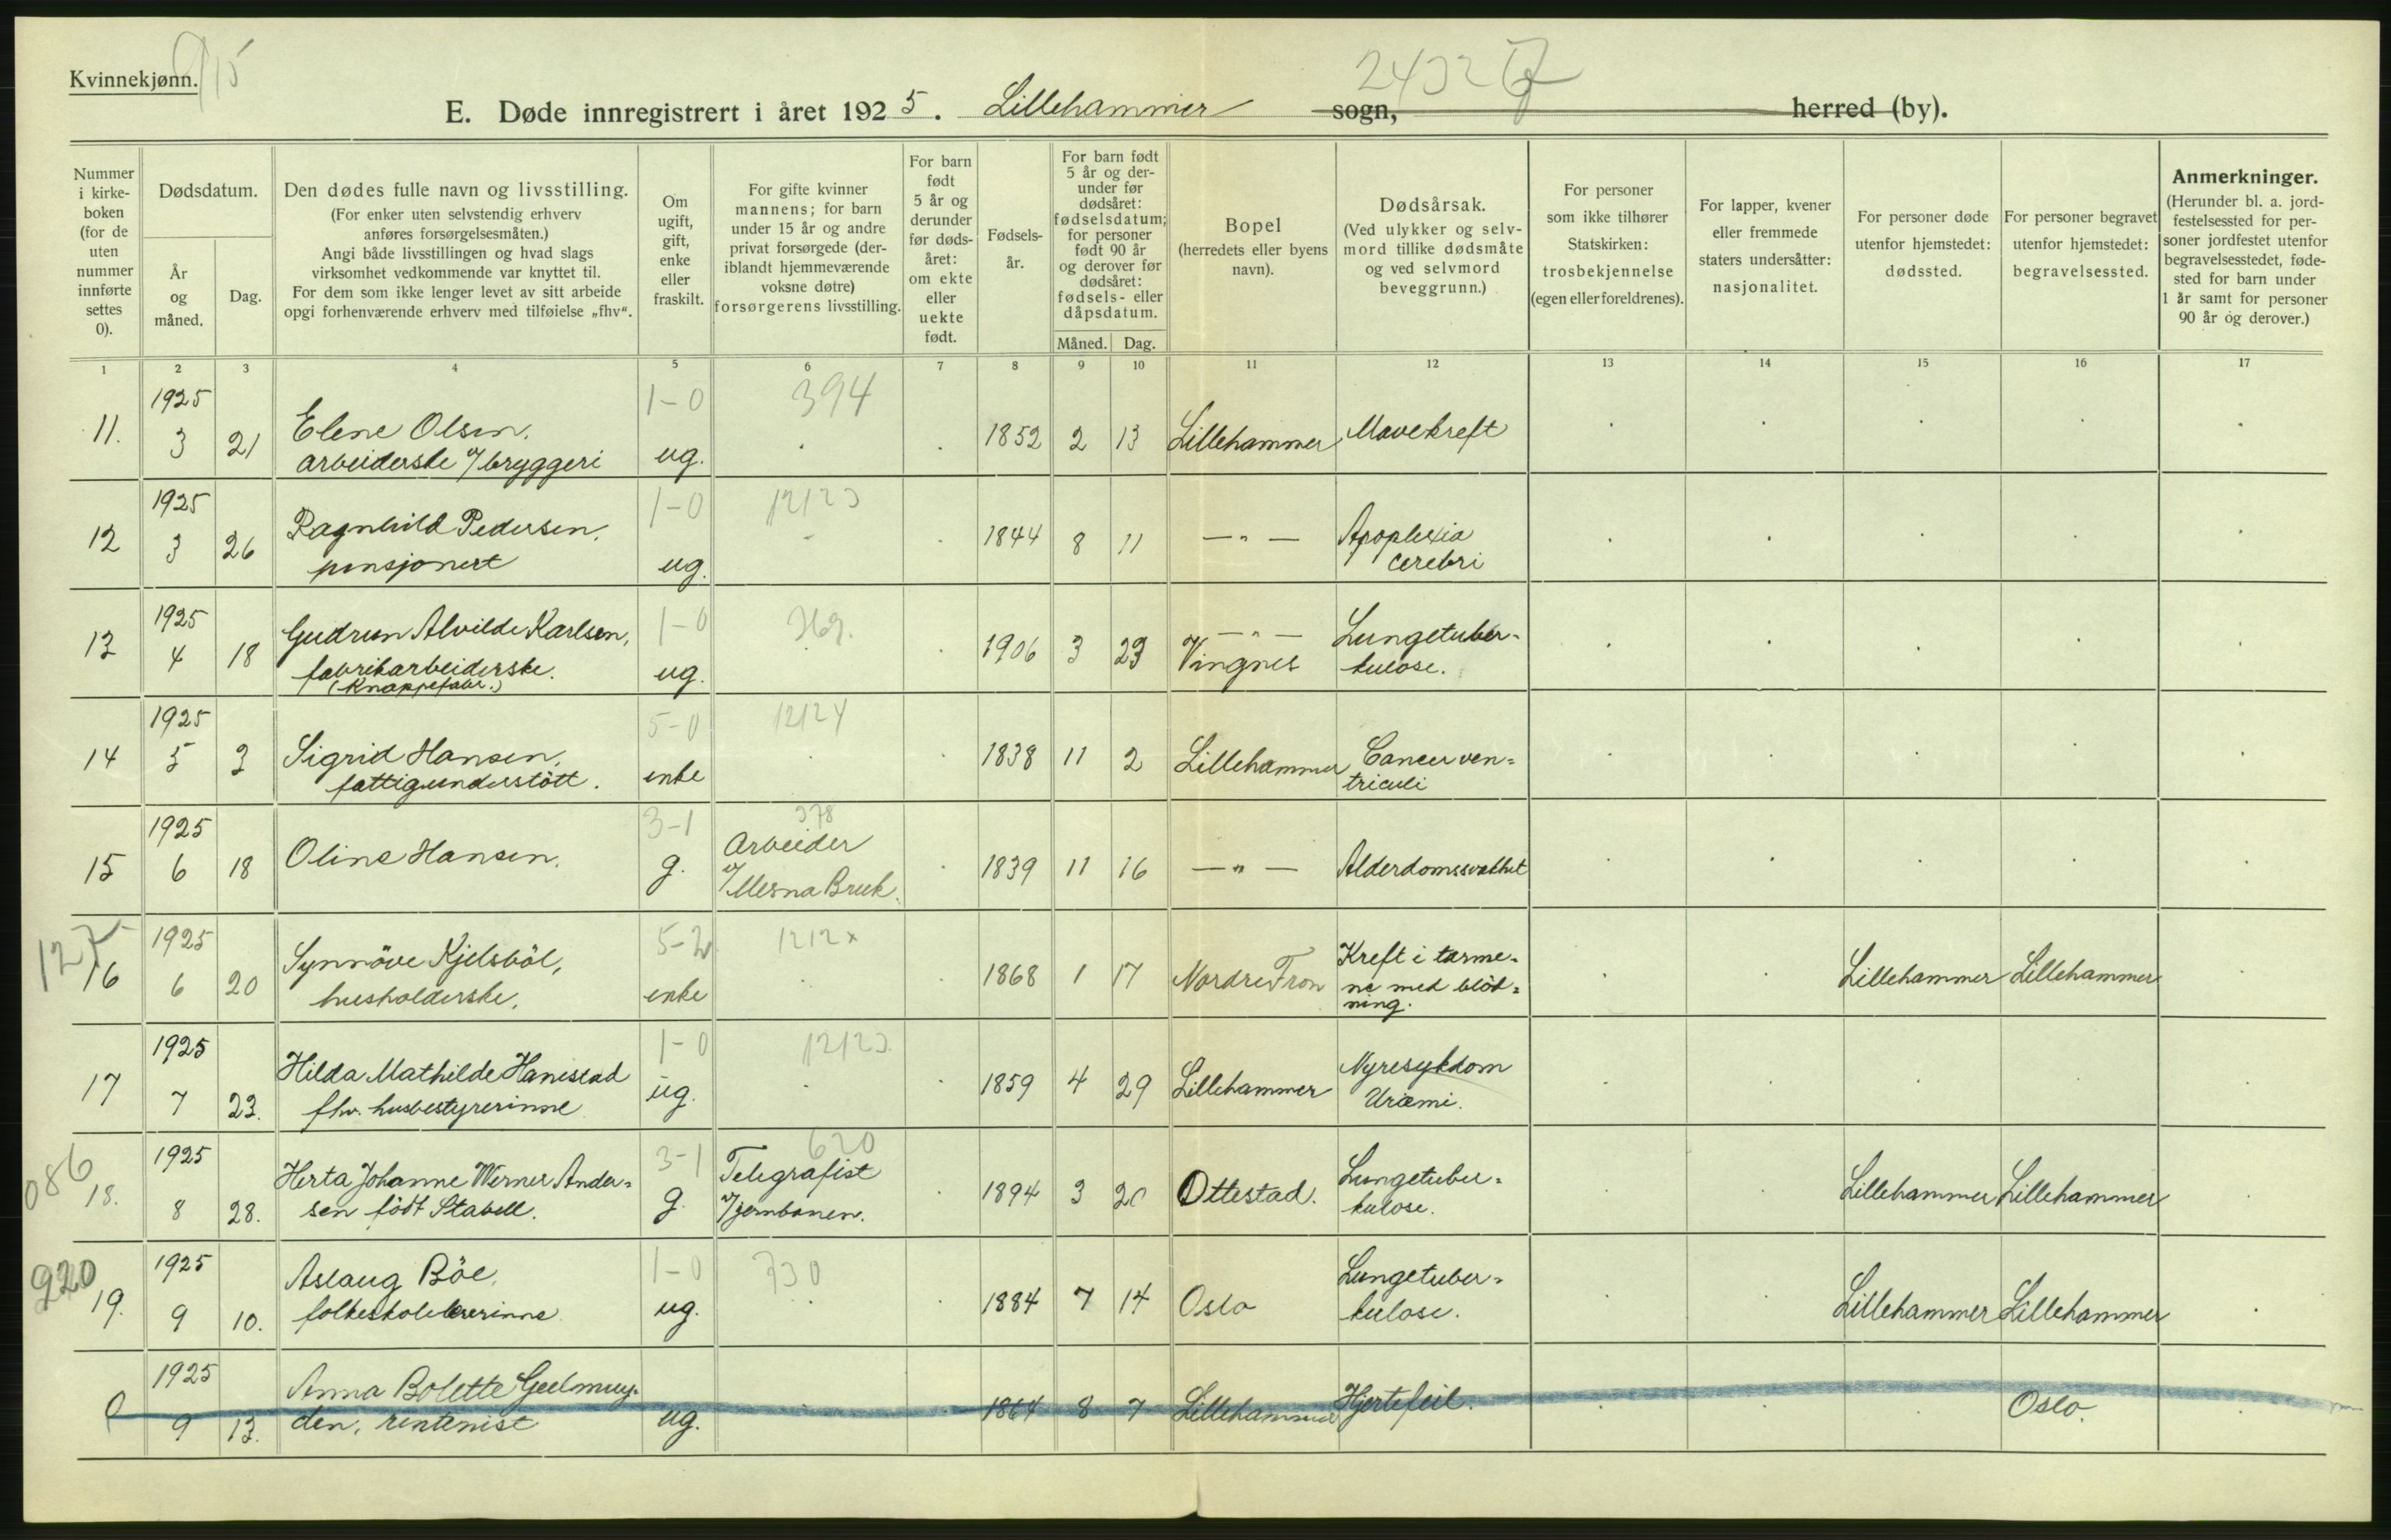 Kvinnekjønn.
2432
E. Døde innregistrert i året 1925. Lillehammer sogn, herred (by).
Nummer i kirkeboken (for de uten nummer innførte settes 0).
Dødsdatum.
År og måned.
Dag.
Den dødes fulle navn og livsstilling.
(For enker uten selvstendig erhverv anføres forsørgelsesmåten.)
Angi både livsstillingen og hvad slags virksomhet vedkommende var knyttet til.
For dem som ikke lenger levet av sitt arbeide opgi forhenværende erhverv med tilføielse „fhv“.
Om ugift, gift, enke eller fraskilt.
For gifte kvinner mannens; for barn under 15 år og andre privat forsørgede (deriblandt hjemmeværende voksne døtre) forsørgerens livsstilling.
For barn født 5 år og derunder før dødsåret: om ekte eller uekte født.
Fødselsår.
For barn født 5 år og derunder før dødsåret: fødselsdatum; for personer født 90 år og derover før dødsåret: fødsels- eller dåpsdatum.
Måned. Dag.
Bopel
(herredets eller byens navn).
Dødsårsak.
(Ved ulykker og selvmord tillike dødsmåte og ved selvmord beveggrunn.)
For personer som ikke tilhører Statskirken: trosbekjennelse (egen eller foreldrenes).
For lapper, kvener eller fremmede staters undersåtter: nasjonalitet.
For personer døde utenfor hjemstedet: dødssted.
For personer begravet utenfor hjemstedet: begravelsessted.
Anmerkninger.
(Herunder bl. a. jordfestelsessted for personer jordfestet utenfor begravelsesstedet, fødested for barn under 1 år samt for personer 90 år og derover.)
1 2 3 4 5 6 7 8 9 10 11 12 13 14 15 16 17
1925 1-0 394
11. 3 21 Elene Olsen, arbeiderske v/ bryggeri ug. 1852 2 13 Lillehammer Mavekreft
1925 1-0 12123
12 3 26 Ragnhild Pedersen, pensjonert ug. 1844 8 11 —"— Apoplexia cerebri
1925 1-0
13 4 18 Gudrun Alvilde Karlsen, fabrikarbeiderske. (Knappefabr.) ug. 1906 3 23 —"— Vingnes Lungetuberkulose.
1925 5-0 12124
14 5 3 Sigrid Hansen, fattigunderstött. enke 1838 11 2 Lillehammer Cancer ventriculi
1925 3-1 378
15 6 18 Oline Hansen. g. Arbeider v/ Mesna Bruk. 1839 11 16 —"— Alderdomssvakhet
1925 5-2 1212x
16 6 20 Synnöve Kjelsböl, husholderske. enke 1868 1 17 Nordre Fron Kreft i tarmene med blödning. Lillehammer Lillehammer
1925 1-0 12123
17 7 23. Hilda Mathilde Hanestad fhv. husbestyrerinne ug. 1859 4 29 Lillehammer Nyresykdom Uræmi.
086 1925 3-1 620
18. 8 28. Herta Johanne Werner Andersen født Stabell. g. Telegrafist v/ jernbanen. 1894 3 20 Ottestad. Lungetuberkulose. Lillehammer Lillehammer
920 1925 1-0 730
19. 9 10. Aslaug Böe, folkeskolelærerinne ug. 1884 7 14 Oslo Lungetuberkulose. Lillehammer Lillehammer
1925
0 9 13. Anna Bolette Geelmuyden, rentenist ug. 1864 8 7 Lillehammer Hjertefeil. Oslo.